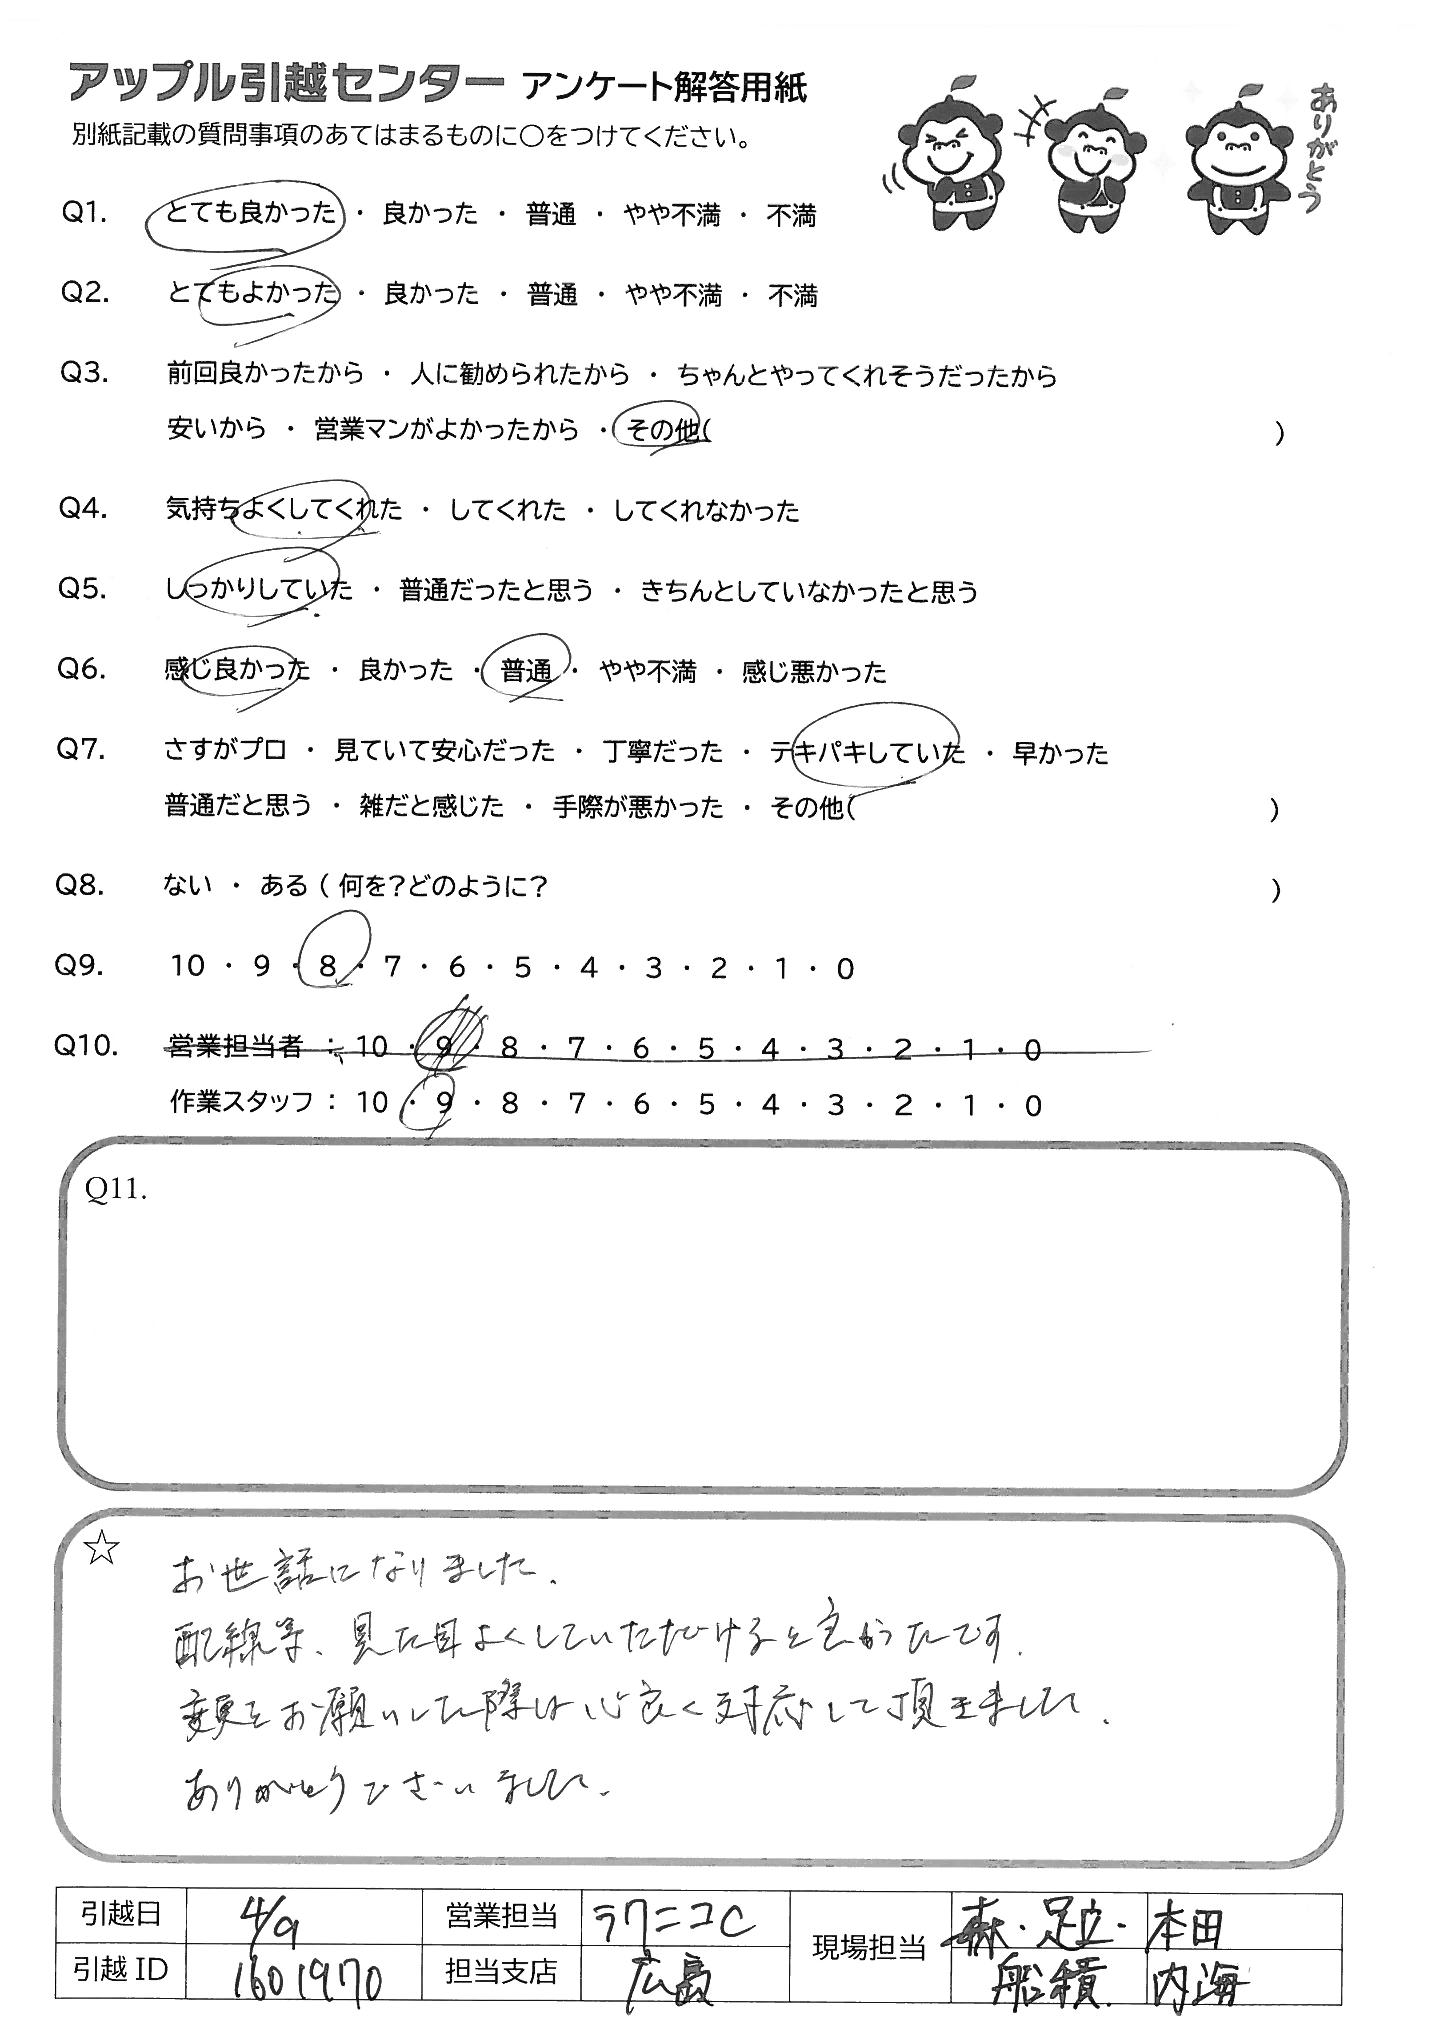 アップル引越センター アンケート解答用紙
別紙記載の質問事項のあてはまるものに○をつけてください。
ありがとう
Q1. とても良かった ・ 良かった ・ 普通 ・ やや不満 ・ 不満
Q2. とてもよかった ・ 良かった ・ 普通 ・ やや不満 ・ 不満
Q3. 前回良かったから ・ 人に勧められたから ・ ちゃんとやってくれそうだったから
安いから ・ 営業マンがよかったから ・ その他( )
Q4. 気持ちよくしてくれた ・ してくれた ・ してくれなかった
Q5. しっかりしていた ・ 普通だったと思う ・ きちんとしていなかったと思う
Q6. 感じ良かった ・ 良かった ・ 普通 ・ やや不満 ・ 感じ悪かった
Q7. さすがプロ ・ 見ていて安心だった ・ 丁寧だった ・ テキパキしていた ・ 早かった
普通だと思う ・ 雑だと感じた ・ 手際が悪かった ・ その他( )
Q8. ない ・ ある ( 何を?どのように? )
Q9. 10 ・ 9 ・ 8 ・ 7 ・ 6 ・ 5 ・ 4 ・ 3 ・ 2 ・ 1 ・ 0
Q10. 営業担当者 : 10 ・ 9 ・ 8 ・ 7 ・ 6 ・ 5 ・ 4 ・ 3 ・ 2 ・ 1 ・ 0
作業スタッフ : 10 ・ 9 ・ 8 ・ 7 ・ 6 ・ 5 ・ 4 ・ 3 ・ 2 ・ 1 ・ 0
Q11.
☆ お世話になりました.
配線等、見た目よくしていただけると良かったです.
変更をお願いした際は心良く対応して頂きました.
ありがとうございました.
引越日 4/9 営業担当 ラクニコC 現場担当 森・足立・本田
引越ID 1601970 担当支店 広島 船積 内海